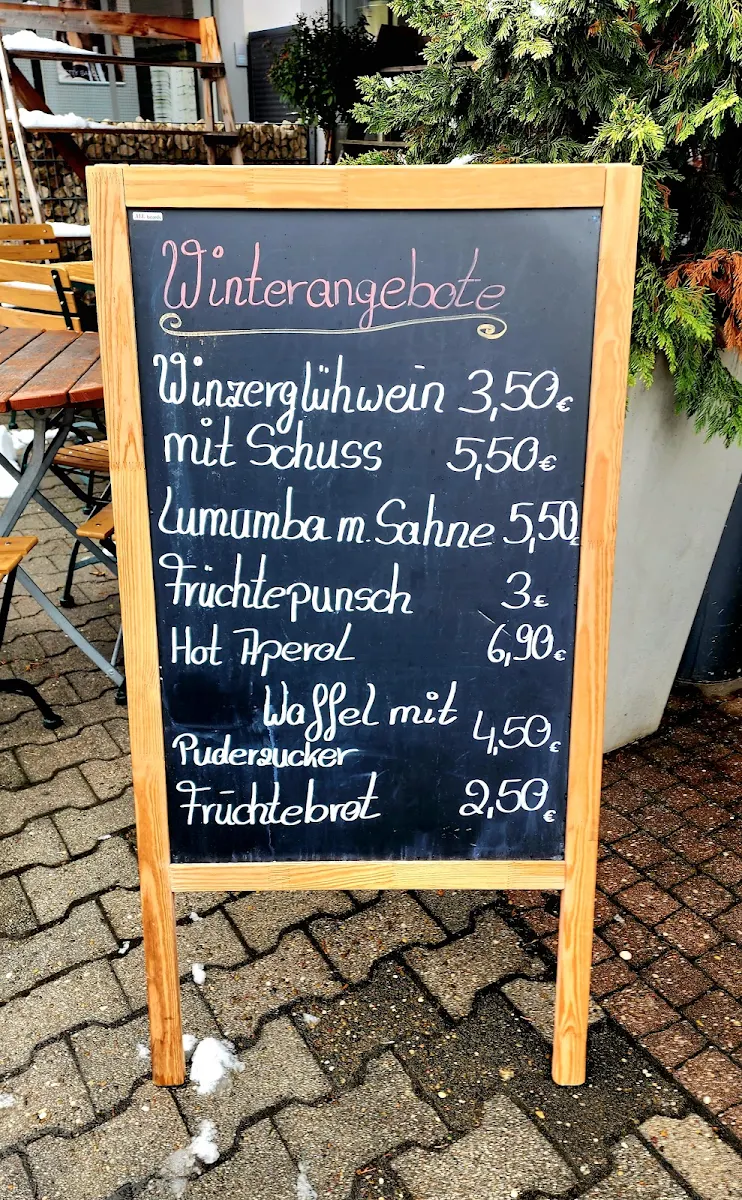 Winterangebote
Winzerglühwein 3,50€
mit Schuss 5,50€
Lumumba m. Sahne 5,50€
Früchtepunsch 3€
Hot Aperol 6,90€
Waffel mit
Puderzucker 4,50€
Früchtebrot 2,50€